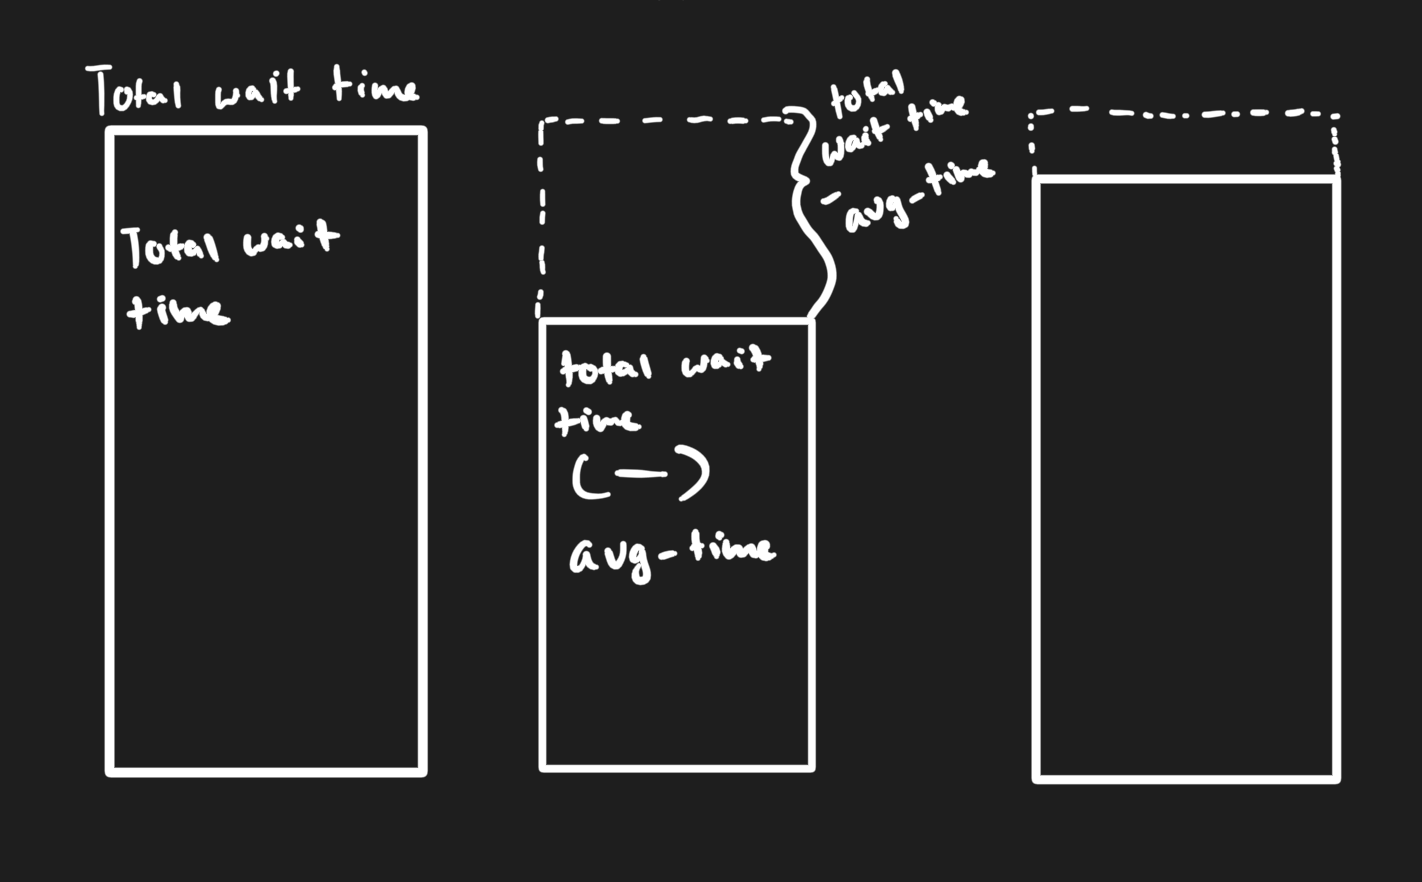 Total wait time
Total wait
time
total wait
time
(-)
avg-time
total
wait time
- avg-time